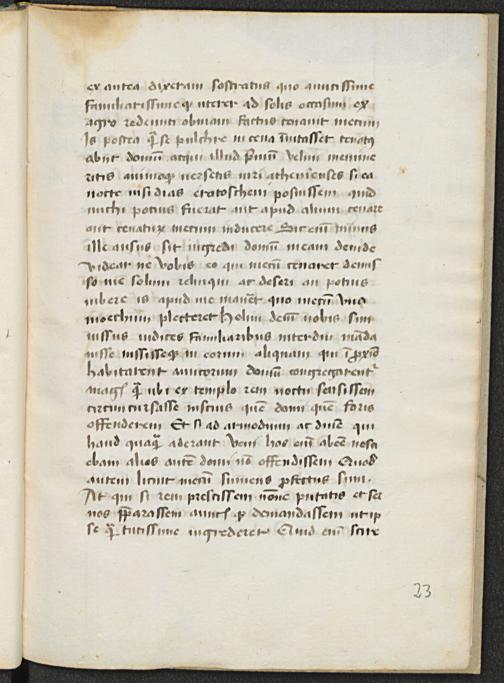 ex antea dixeram sostratus quo amicissime
familiarissimeq uterer ad solis occasum ex
agro redeunti obviam factus cenavit mecum
Is postea q̃ se pulchre in cena invitasset cenatus
abiit domum atqui illud velim memine
ritis animoq versetis viri athenienses si ea
nocte insidias eratostheni posuissem quid
michi potius fuerat aut apud alium cenare
aut cenatum mecum inducere Sic eni minus
ille ausus sit ingredi domum meam deinde
videat ne vobis eo qui mecu cenaret demis
so me solum relinqui ac deseri an potius
iubere is apud me maneret quo mecum
moechum plecteret Velim dem nobis sim
iussus iudices familiaribus interdiu manda
visse iussisseq in eorum aliquam qui proxi
habitarent amicorum domum congregarent
magis q̃ ubi ex templo rem noctu sensissem
circum cursasse inscius que domi que foris
offenderem Et si ad armodium ac qui
haud quaq̃ aderant veni hos eni abee nesci
ebam alios aute domi no offendissem Quod
autem licuit mecu sumens profectus sum
At qui si rem prescissem none putatis et ser
vos preparassem amicis demandassem ut ip
se q̃ tutissime ingrederer Quid eni scire
23